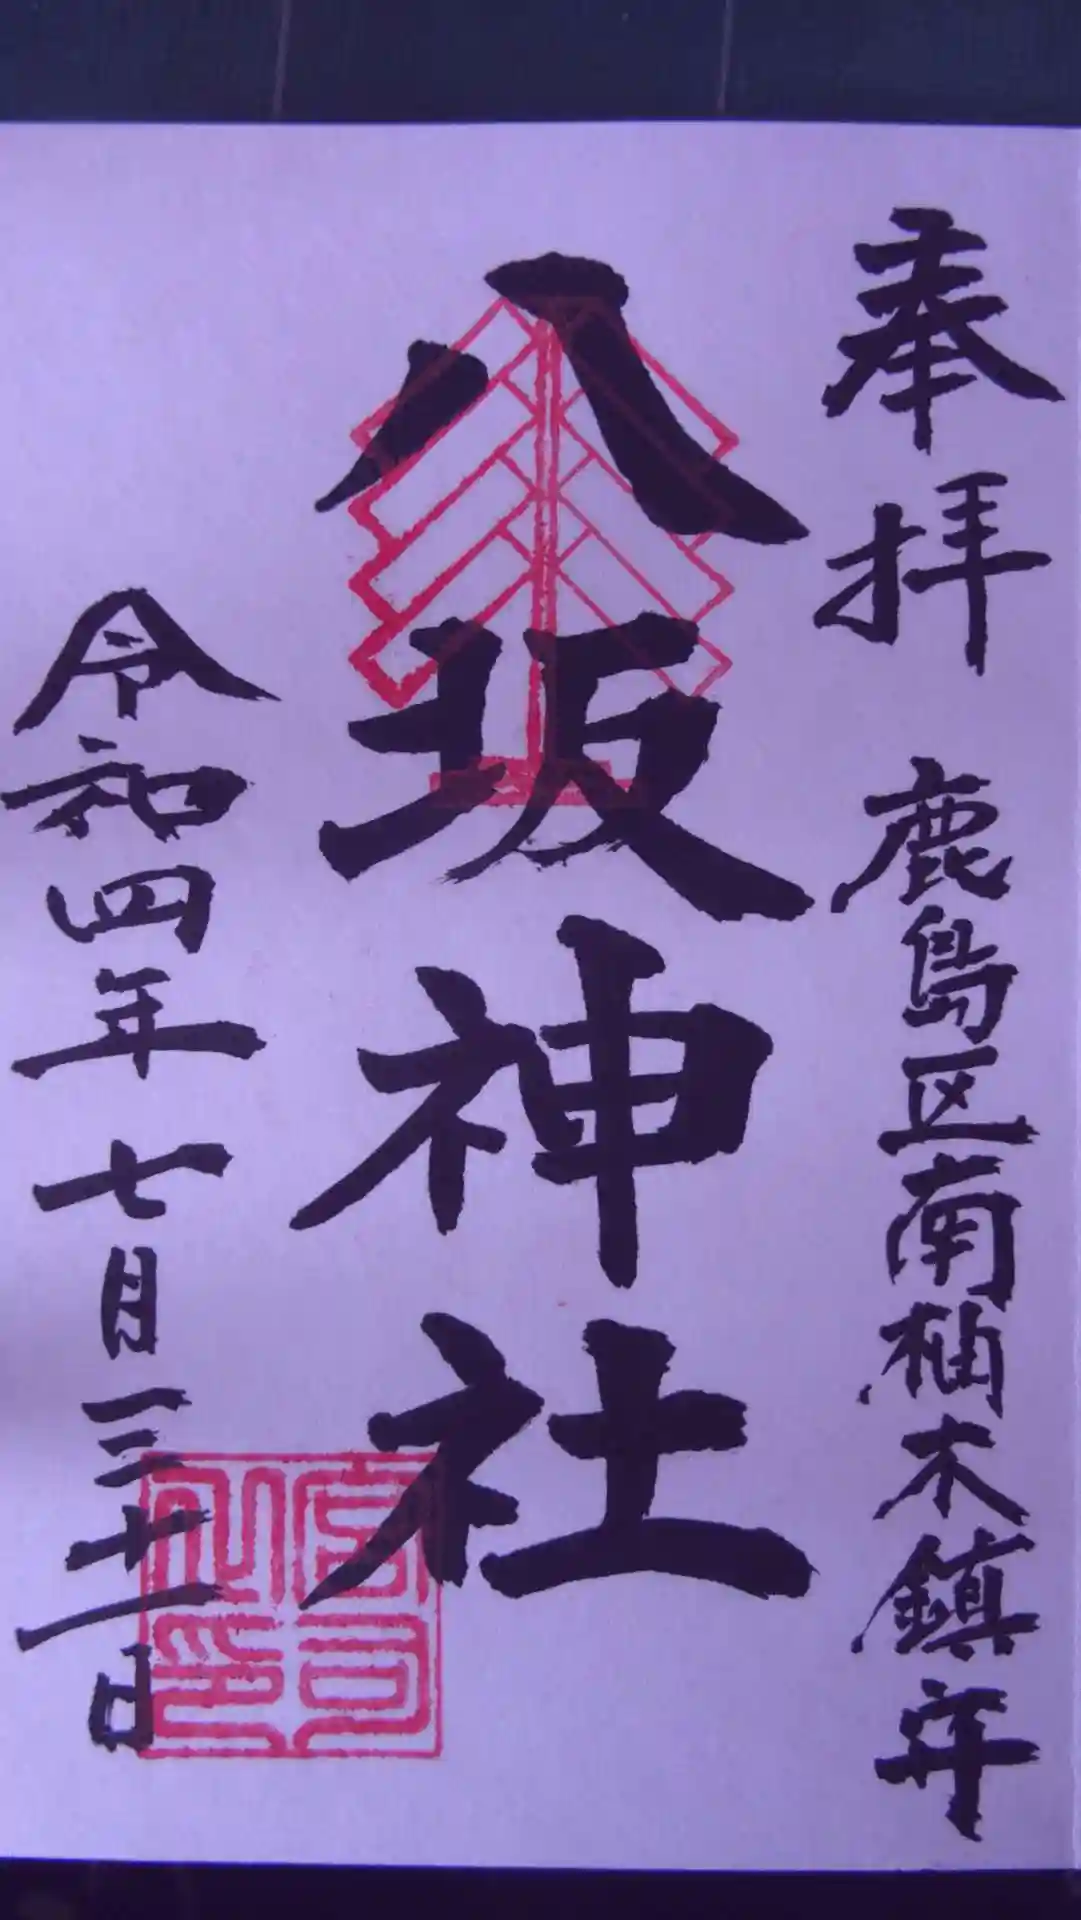 奉拝 鹿島区南柚木鎮守
八坂神社
令和四年 七月三十一日
宮司之印